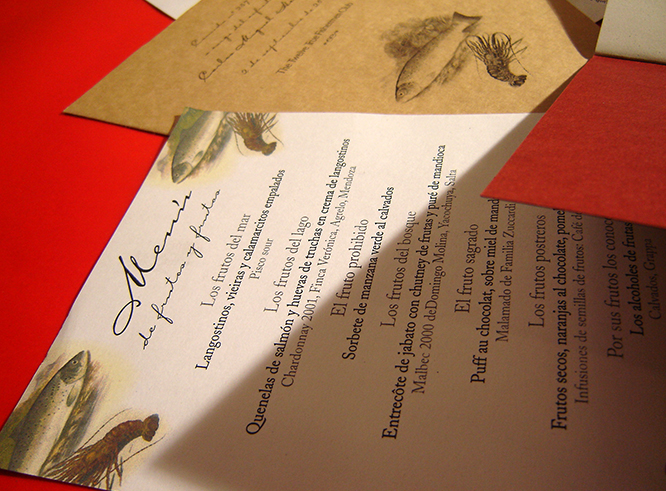 Menú
de frutos y frutas
Los frutos del mar
Pisco sour
Langostinos, vieiras y calamarcitos empalados
Los frutos del lago
Quenelas de salmón y huevas de truchas en crema de langostinos
Chardonnay 2001, Finca Verónica, Agrelo, Mendoza
El fruto prohibido
Sorbete de manzana verde al calvados
Los frutos del bosque
Entrecôte de jabato con chutney de frutas y puré de mandioca
Malbec 2000 de Domingo Molina, Yacochuya, Salta
El fruto sagrado
Puff au chocolat, sobre miel de mand
Malamado de Familia Zuccardi
Los frutos postreros
Frutos secos, naranjas al chocolate, pome
Infusiones de semillas de frutos: Café d
Por sus frutos los conoc
Los alcoholes de frutas
Calvados, Grappa